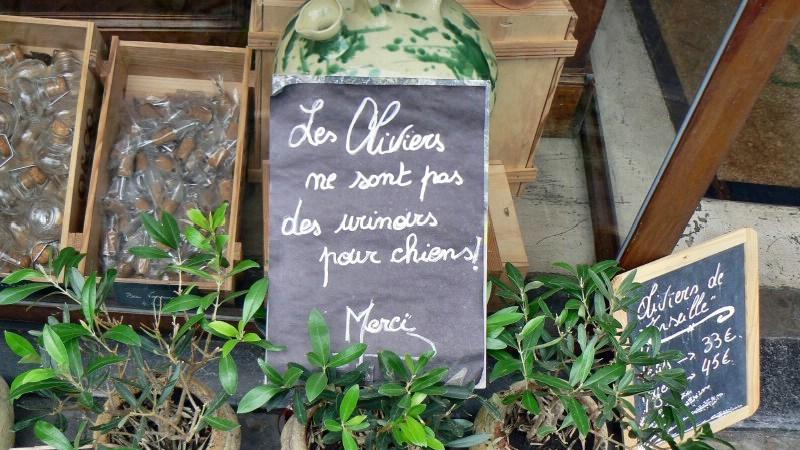 Les Oliviers
ne sont pas
des urinoirs
pour chiens!
Merci
Oliviers de
33€
45€